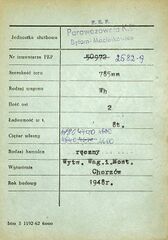 P. K. P.
Jednostka służbowa
Parowozownia Kl.
Bytom-Maciejkowice
Nr inwentarza PKP 50972 2582-9
Szerokość toru 785mm
Rodzaj wagonu Wh
Ilość osi 2
Ładowność w t. 8t.
Ciężar własny 4400
Rodzaj hamulca ręczny
Wytwórnia Wytw. Wag. i Most.
Chorzów
Rok budowy 1948r.